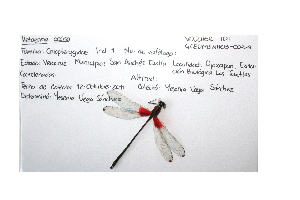 Hetaerina
VOUCHER
Familia: Calopterygidae Ind 1 No. de catálogo:
Estado: Veracruz Municipio: San Andrés Tuxtla Localidad: Ejexapan, Estación
Biológica Los Tuxtlas
Coordenadas: Altitud:
Fecha de Colecta: 12-Octubre-2011 Colectó: Yesenia Vega Sánchez
Determinó: Yesenia Vega Sánchez